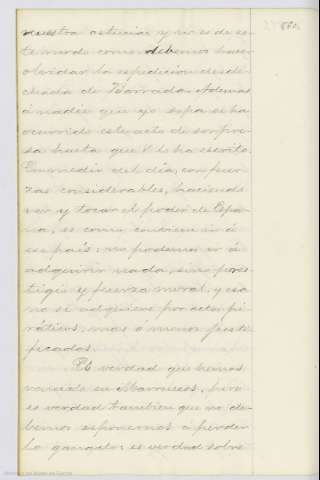 nuestra astucia; y no es de es-
te modo como debemos hacer
olvidar la espedicion desde-
chada de Barradas. Ademas
á nadie que yo sepa se ha
ocurrido este acto de sorpre-
sa hasta que V. lo ha escrito.
En medio del dia, con fuer-
zas considerables, haciendo
ver y tocar el poder de Espa-
ña, es como conviene ir á
ese pais; no podemos ir á
adquirir nada, sino pres-
tigio y fuerza moral, y esa
no se adquiere por actos pi-
ráticos, mas ó menos justi-
ficados.
Es verdad que hemos
vencido en Marruecos, pero
es verdad tambien que no de-
bemos esponernos á perder
lo ganado: es verdad sobre